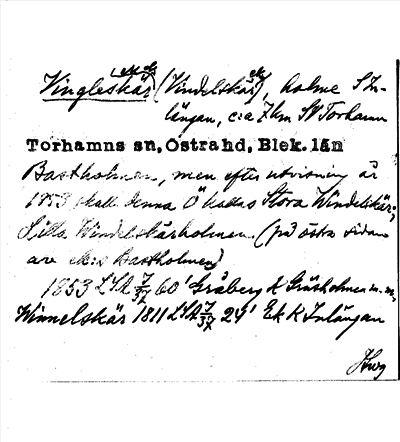 Vingleskär (Vindelskär), holme S In-
längan, c:a 7 km SV Torhamn
Torhamns sn, Östrahd, Blek. län
Bastholmen, men efter utvisning är
1853 skall denna Ö kallas Stora Windelskär;
Lilla Windelskärholmen (på östra sidan
av ek:s Bastholmen)
1853 LSA 7/37 60' Gråberg K Gräsholmen m.m.
Winnelskär 1811 LSA 7/37 24' Ek K Inlängan